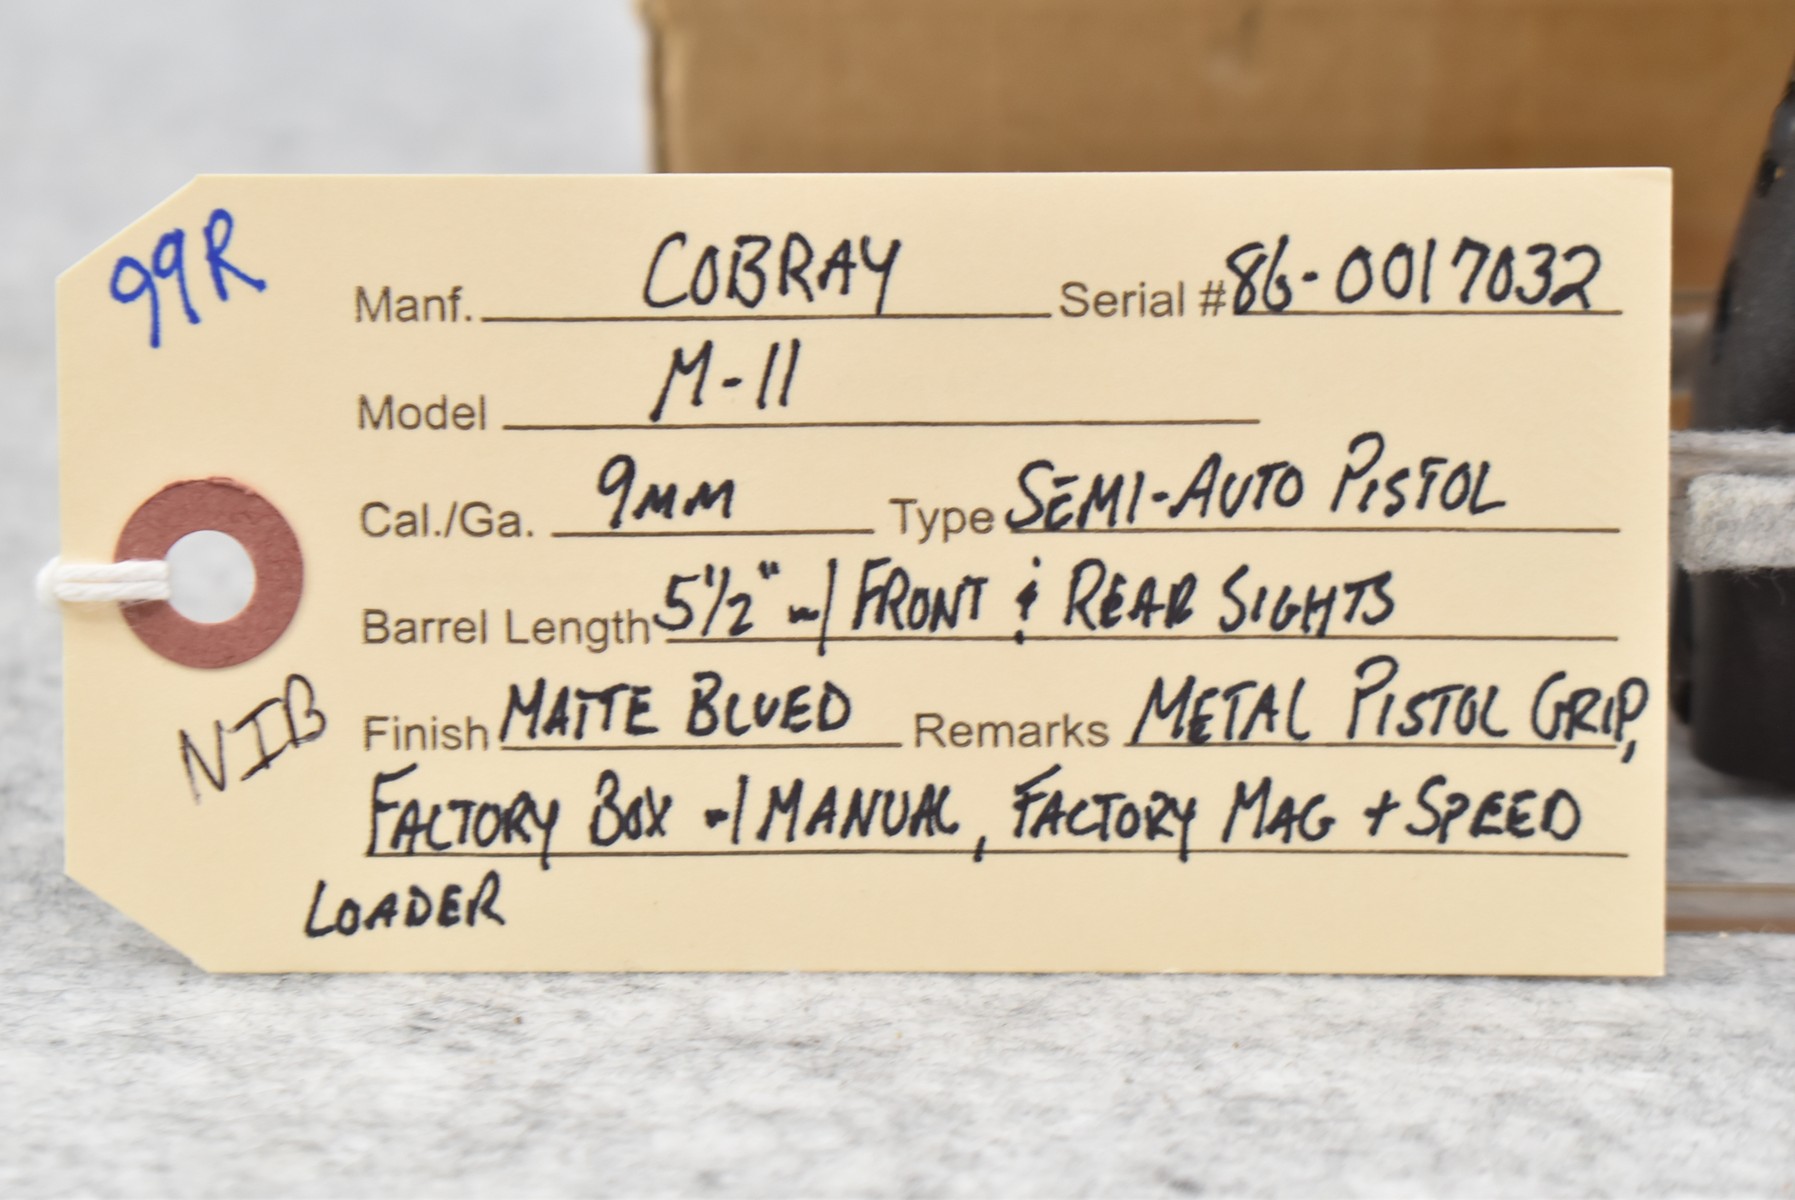 99R
Manf. COBRAY Serial # 86-0017032
Model M-11
Cal./Ga. 9MM Type SEMI-AUTO PISTOL
Barrel Length 5 1/2" w/ FRONT & REAR SIGHTS
NIB
Finish MATTE BLUED Remarks METAL PISTOL GRIP,
FACTORY BOX w/ MANUAL, FACTORY MAG + SPEED
LOADER